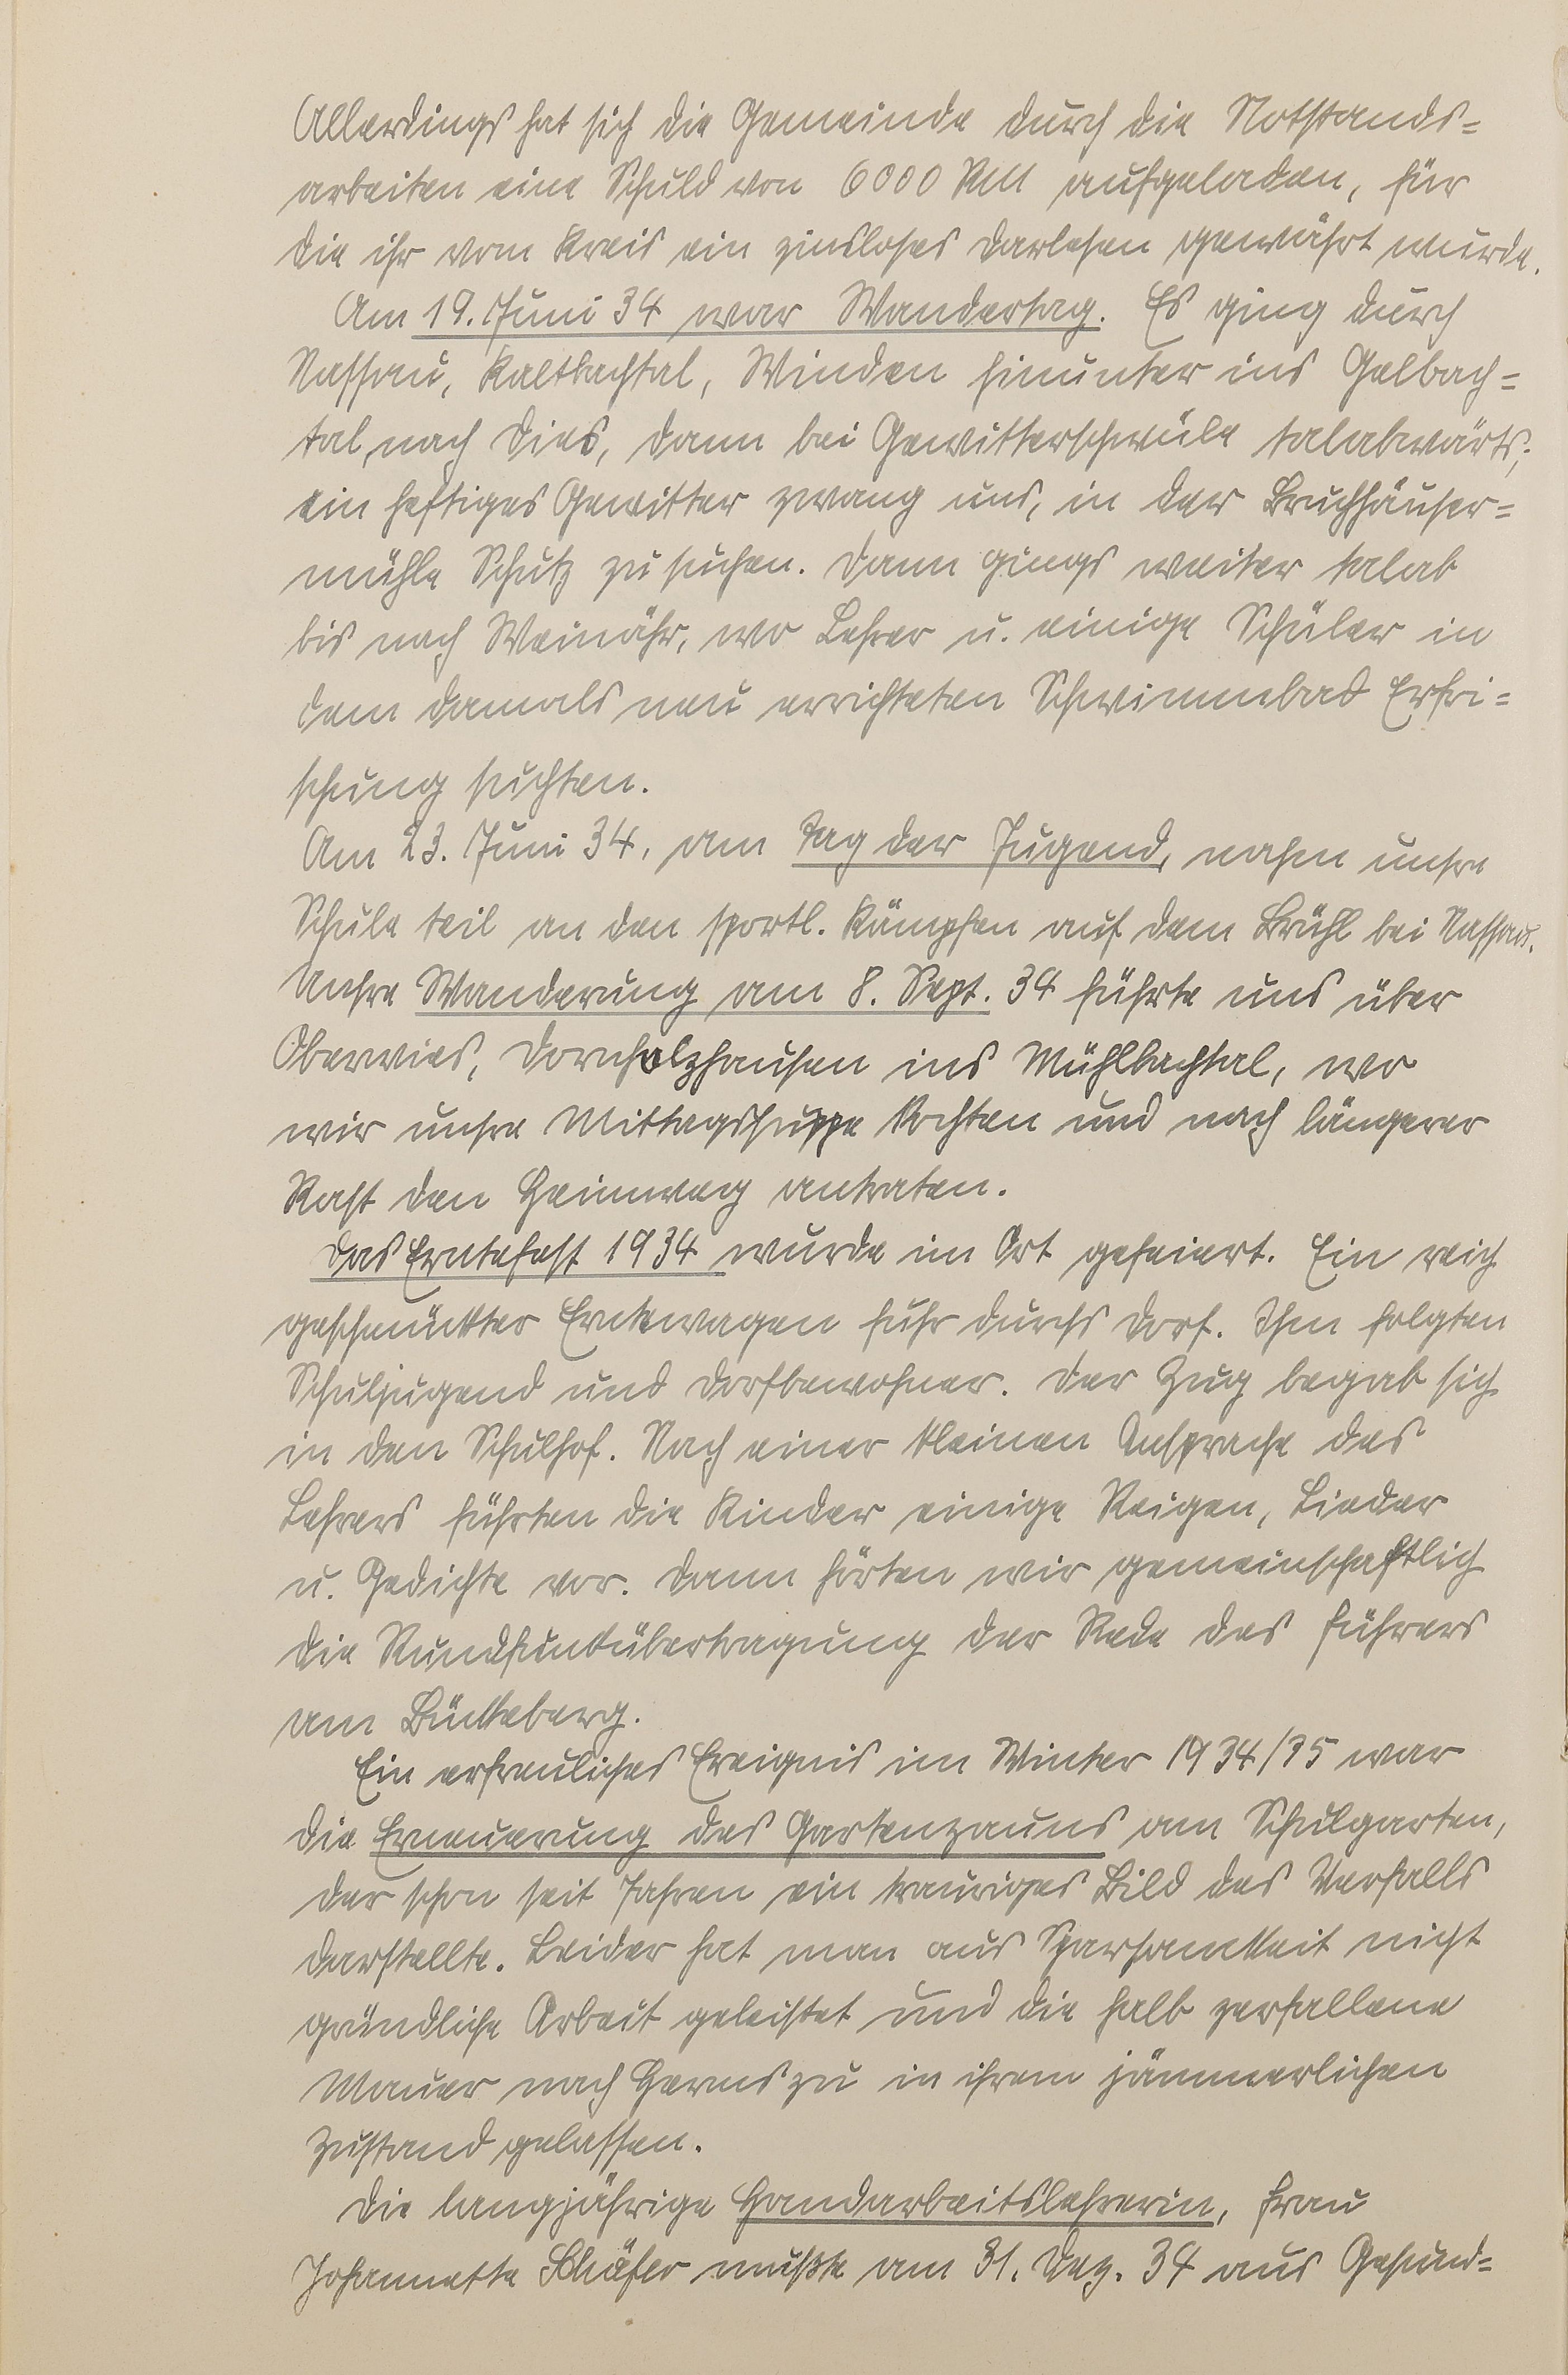 Allerdings hat sich die Gemeinde durch die Notstands=
arbeiten eine Schuld von 6000 RM aufgeladen, für
die ihr vom Kreis ein zinsloses Darlehen gewährt wurde.
Am 19. Juni 34 war Wandertag. Es ging durch
Nassau, Kaltbachtal, Winden hinunter ins Gelbach=
tal, nach Dies, dann bei Gewitterschwüle talabwärts;
ein heftiges Gewitter zwang uns, in der Bruchhäuser=
mühle Schutz zu suchen. Dann gings weiter talab
bis nach Weinähr, wo Lehrer u. einige Schüler in
dem damals neu errichteten Schwimmbad Erfri=
schung suchten.
Am 23. Juni 34, am Tag der Jugend, nahm unsre
Schule teil an den sportl. Kämpfen auf dem Brühl bei Nassau.
Unsre Wanderung am 8. Sept. 34 führte uns über
Oberwies, Dornholzhausen ins Mühlbachtal, wo
wir unsre Mittagssuppe kochten und nach längerer
Rast den Heimweg antraten.
Das Erntefest 1934 wurde im Ort gefeiert. Ein reich
geschmückter Erntewagen fuhr durchs Dorf. Ihm folgten
Schuljugend und Dorfbewohner. Der Zug begab sich
in den Schulhof. Nach einer kleinen Ansprache des
Lehrers führten die Kinder einige Reigen, Lieder
u. Gedichte vor. Dann hörten wir gemeinschaftlich
die Rundfunkübertragung der Rede des Führers
am Bückeberg.
Ein erfreuliches Ereignis im Winter 1934/35 war
die Erneuerung des Gartenzauns am Schulgarten,
der schon seit Jahren ein trauriges Bild des Verfalls
darstellte. Leider hat man aus Sparsamkeit nicht
gründliche Arbeit geleistet und die halb zerfallene
Mauer nach Herms zu in ihrem jämmerlichen
Zustand gelassen.
Die langjährige Handarbeitslehrerin, Frau
Johannette Schäfer mußte am 31. Dez. 34 aus Gesund=